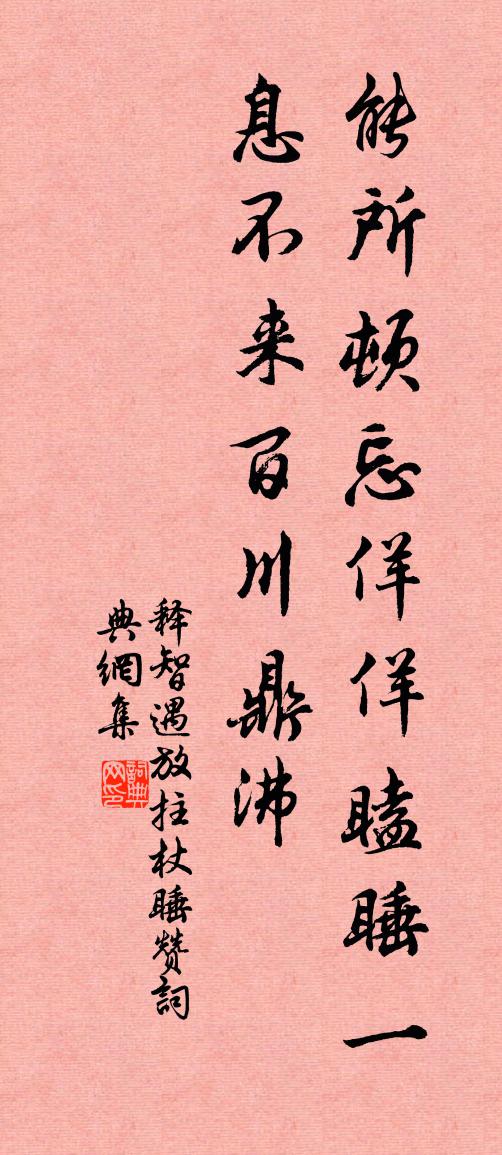 能所顿忘佯佯瞌睡一
息不来百川鼎沸
释智遇放拄杖睡赞詞
典網集
詞典网印